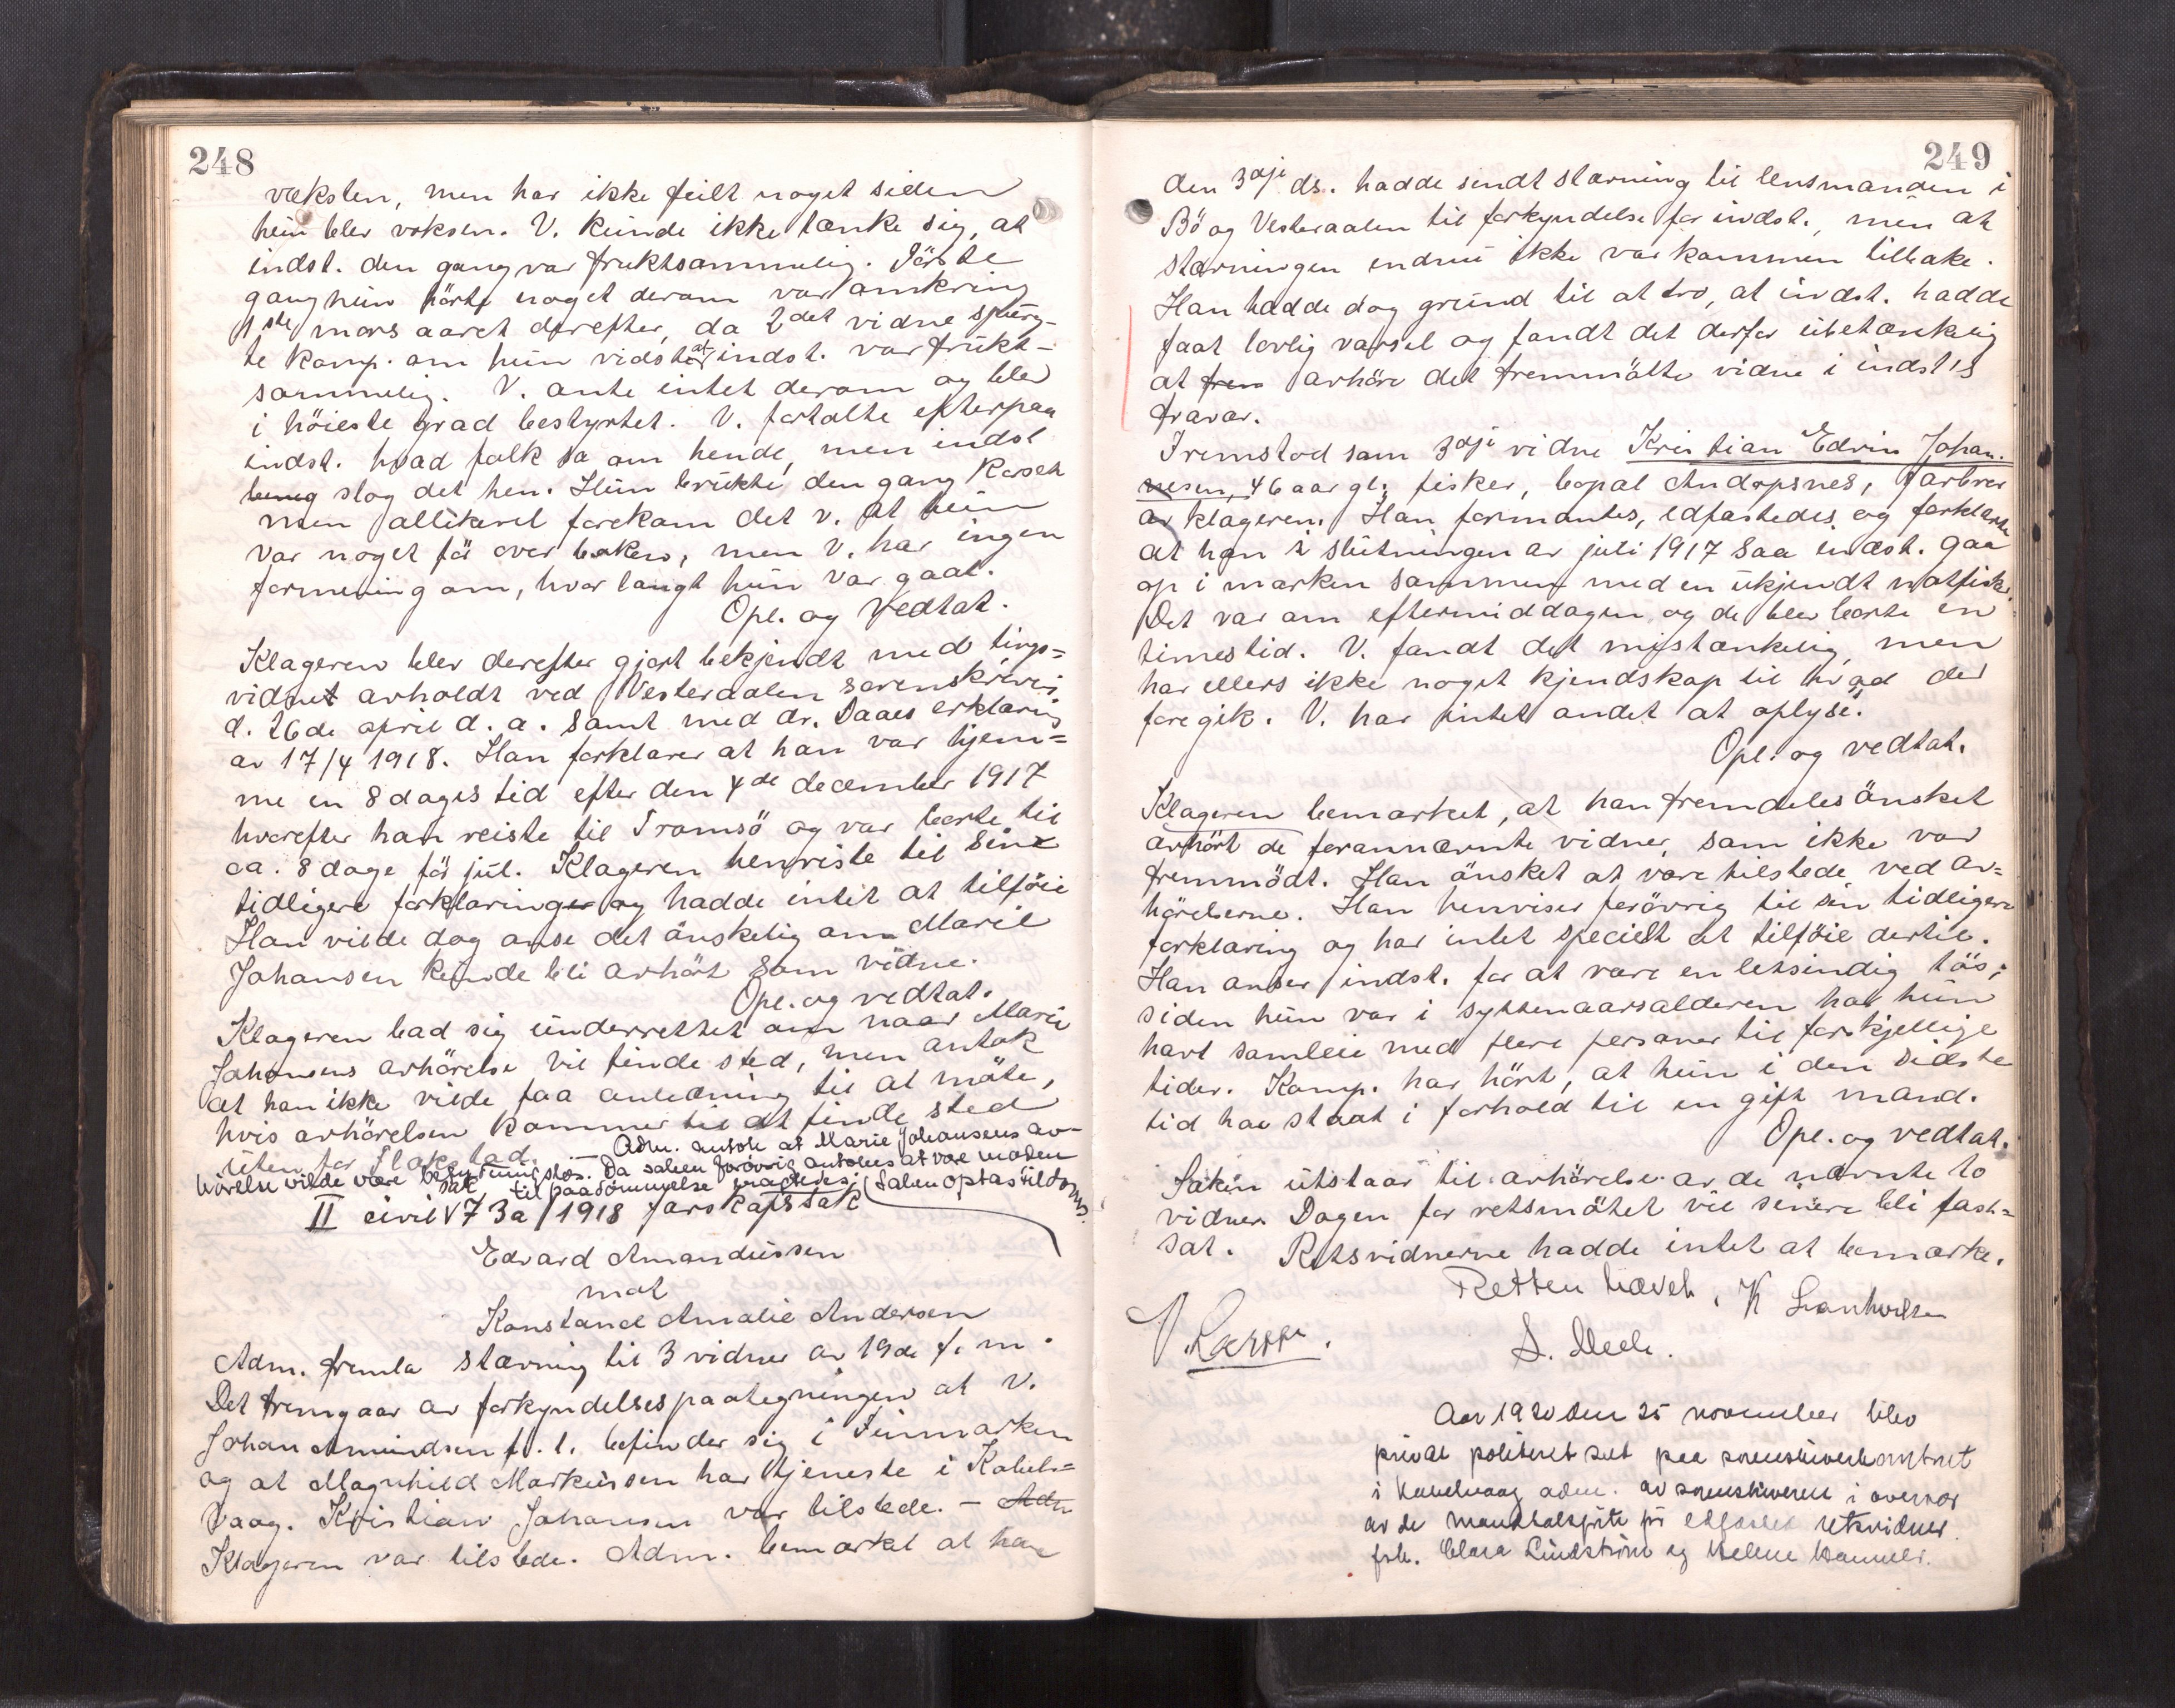 248
veksten, men har ikke feilt noget siden
hun blev voksen. V. kunde ikke tænke sig, at
indst. den gang var fruktsommelig. Förste
gang hun hörte noget derom var omkring
1ste mars aaret derefter, da 2det vidne spurg-
te komp. om hun vidste at indst. var frukt-
sommelig. V. ante intet derom og blev
i höieste grad bestyrtet. V. fortalte efterpaa
indst. hvad folk sa om hende, men indst
slog det hen. Hun brukte den gang korset
men allikevel forekom det v. at hun
var noget för over baken, men v. har ingen
formening om, hvor langt hun var gaat.
Opl. og vedtat.
Klageren blev derefter gjort bekjendt med tings=
vidnet avholdt ved Vesteraalen sorenskriveri
d. 26de april d. a. samt med dr. Daaes erklæring
av 17/4 1918. Han forklarer at han var hjem=
me en 8 dages tid efter den 4de december 1917
hvorefter han reiste til Tromsö og var borte til
ca. 8 dage för jul. Klageren henviste til sine
tidligere forklaringer og hadde intet at tilföie
Han vilde dog anse det önskelig om Marie
Johansen kunde bli avhört som vidne.
Opl. og vedtat.
Klageren bad sig underrettet om naar Marie
Johansens avhörelse vil finde sted, men antok
at han ikke vilde faa anledning til at möte,
hvis avhörelsen kommer til at finde sted
uten for Flakstad. — Adm. antok at Marie Johansens av-
hörelse vilde være betydningslös. Da saken forövrig antokes at være moden
til paadömmelse Saken optas til doms.
II civil sak 73a/1918 farskapssak
Edvard Amandussen
mot
Konstance Amalie Andersen
Adm. fremla stævning til 3 vidner av 19de f. m.
Det fremgaar av forkyndelsespaategningen at v.
Johan Amundsen f. t. befinder sig i Finmarken
og at Magnhild Markussen har tjeneste i Kabel=
vaag. Kristian Johansen var tilstede. — Adm
Klageren var tilstede. Adm. bemerket at han
249
den 3dje ds. hadde sendt stævning til lensmanden i
Bö og Vesteraalen til forkyndelse for indst., men at
stævningen endnu ikke var kommen tilbake.
Han hadde dog grund til at tro, at indst. hadde
faat lovlig varsel og fandt det derfor ubetænkelig
at frem avhöre det fremmötte vidne i indst's
fravær.
Fremstod som 3dje vidne Kristian Edvin Johan-
nesen, 46 aar gl. fisker, bopæl Andopsnes, farbror
av klageren. Han formantes, edfæstedes og forklarte
at han i slutningen av juli 1917 saa indst. gaa
op i marken sammen med en ukjendt notfisker.
Det var om eftermiddagen og de blev borte en
timestid. V. fandt det mistænkelig, men
har ellers ikke noget kjendskap til hvad der
foregik. V. har intet andet at oplyse.
Opl. og vedtat.
Klageren bemerket, at han fremdeles önsket
avhört de forannævnte vidner, som ikke var
fremmödt. Han önsket at være tilstede ved av=
hörelserne. Han henviser forövrig til sin tidligere
forklaring og har intet specielt at tilföie dertil.
Han anser indst. for at være en letsindig tös;
siden hun var i syttenaarsalderen har hun
havt samleie med flere personer til forskjellige
tider. Komp. har hört, at hun i den sidste
tid har staat i forhold til en gift mand.
Opl. og vedtat.
Saken utstaar til avhörelse av de nævnte to
vidner. Dagen for retsmötet vil senere bli fast=
sat. Retsvidnerne hadde intet at bemærke.
Retten hævet. K
Aar 1920 den 25 november blev
privat politiret sat paa sorenskriverkontoret
i Kabelvaag adm. av sorenskriveren i overvær
av de mandtalsförte för edfæstet retsvidner
frk. Clara Lindström og Helene